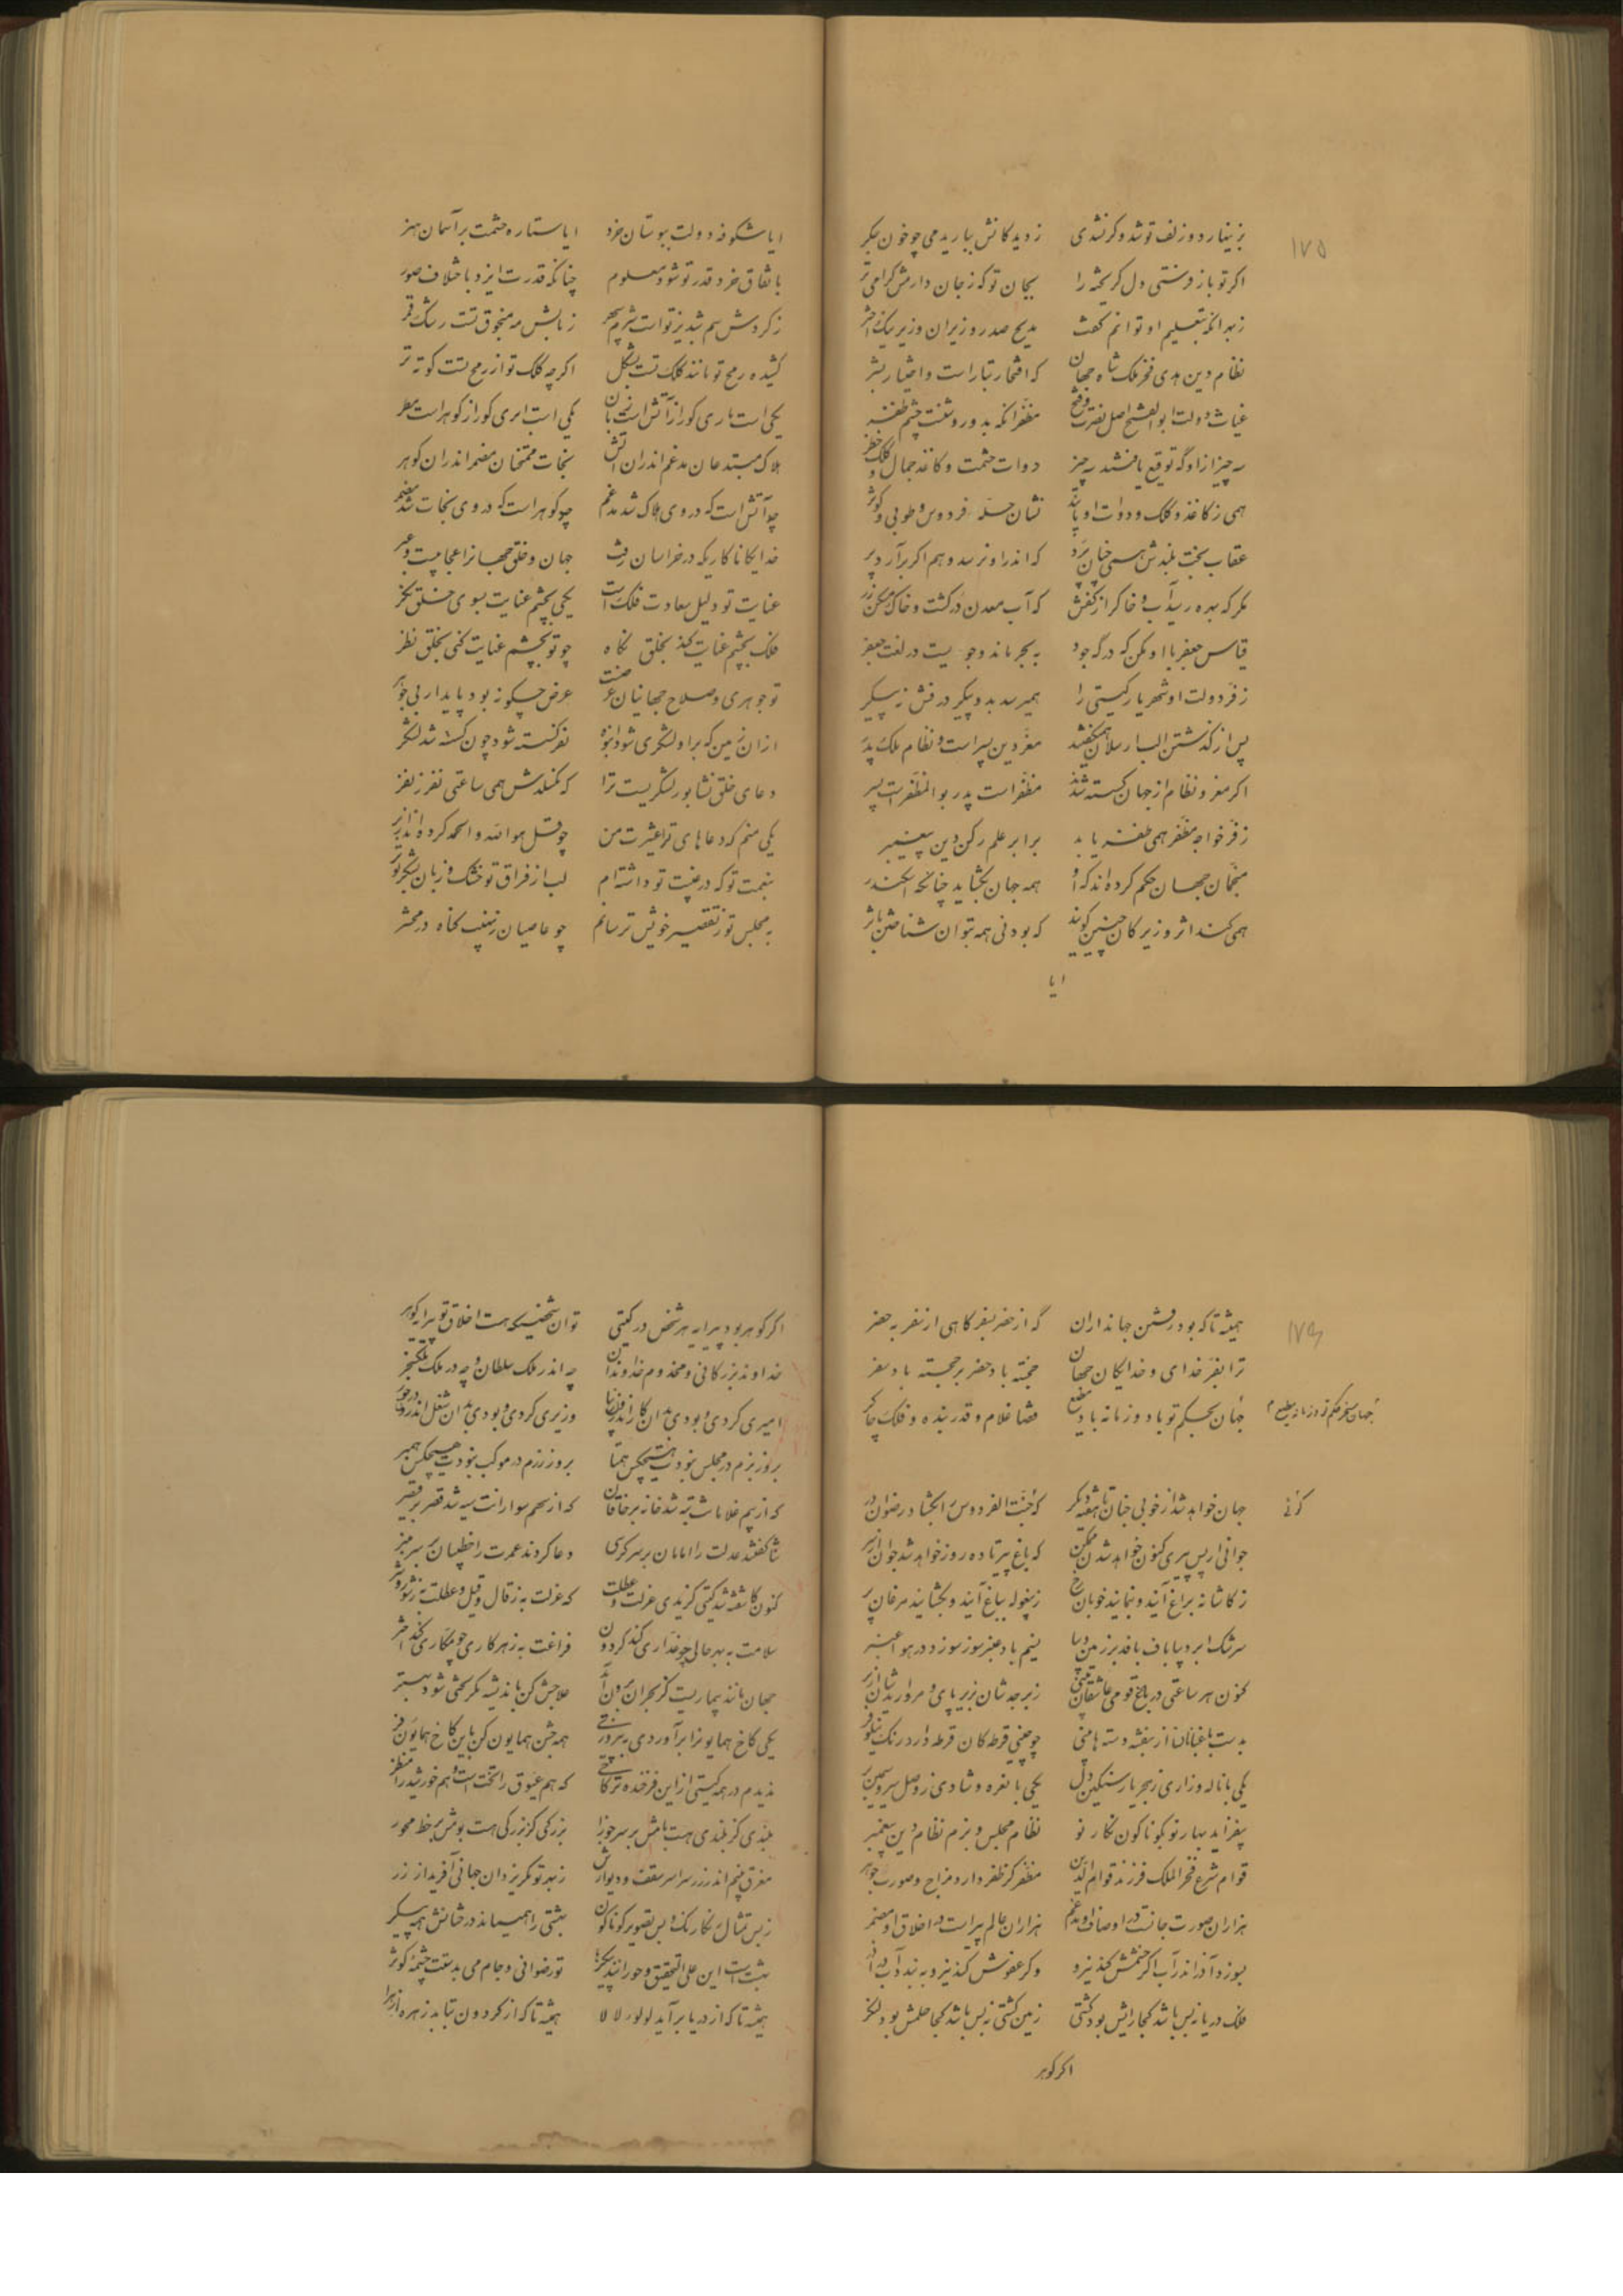 ۱۷۵
بزینهار دو زلف تو شد و گر نشدی    ز دیدگانش بباریدمی چو خون جگر
اگر تو باز فرستی دل گریخته را    بجان تو که ز جان دارمش گرامی تر
زبهر آنکه بتعلیم او توانم گفت    مدیح صدر وزیران وزیر نیک اختر
نظام دین هدی فخر ملک شاه جهان    که افتخار تبار است و اختیار بشر
غیاث دولت ابوالفتح اصل نصرت و فتح    مظفر آنکه بدو روشنست چشم ظفر
سه چیز از او گه توقیع یافتند سه چیز    دوات حشمت و کاغذ جمال و کلک خطر
همی ز کاغذ و کلک و دوات او یابند    نشان حله فردوس و طوبی و کوثر
عقاب بخت بلندش همی چنان پرد    که اندر او نرسد وهم اگر برآرد پر
مگر که بهره رسید آب و خاک را از کفش    که آب معدن در گشت و خاک مسکن زر
قیاس جعفر با او مکن که در گه جود    به بحر ماند و جوییست در لغت جعفر
ز فر دولت او شهریار گیتی را    همیرسد بدو پیکر درفش زه پیکر
پس از گذشتن الب ارسلان همیگفتند    معز دین پسر است و نظام ملک پدر
اگر معز و نظام از جهان گسسته شدند    مظفر است پدر بوالمظفر است پسر
ز فر خواجه مظفر همی ظفر یابد    برابر علم رکن دین پیغمبر
منجمان جهان حکم کرده اند که او    همه جهان بگشاید چنانکه اسکندر
همی کند اثر و زیرکان چنین گویند    که بودنی همه بتوان شناختن باثر
ایا
ایا شکوفه دولت ببوستان خرد    ایا ستاره حشمت بر آسمان هنر
باتفاق خرد قدر تو شود معلوم    چنانکه قدرت ایزد باختلاف صور
ز گردش سم شبدیز تو است شرم سحر    ز تابش مه منجوق تست رشک قمر
کشیده رمح تو مانند کلک تست بشکل    اگر چه کلک تو از رمح تست کوته تر
یکی است ماری کو را ز آتش است زبان    یکی است ابری کو را ز گوهر است مطر
هلاک مبتدعان مدغم اندران آتش    نجات ممتحنان مضمر اندران گوهر
چو آتش است که در وی هلاک شد مدغم    چو گوهر است که در وی نجات شد مضمر
خدایگانا کاریکه در خراسان رفت    جهان و خلق جهانرا عجایبست و عبر
عنایت تو دلیل سعادت فلک است    یکی بچشم عنایت بسوی خلق نگر
فلک بچشم عنایت کند بخلق نگاه    چو تو بچشم عنایت کنی بخلق نظر
تو جوهری و صلاح جهانیان عرضست    عرض چگونه بود پایدار بی جوهر
از آن زمین که برا و لشکری شود انبوه    نفر گسسته شود چون گسسته شد لشکر
دعای خلق نشابور لشکریست ترا    که نگسلدش همی ساعتی نفر ز نفر
یکی منم که دعاهای تر اعشیرت من    چو قل هو الله و الحمد کرده اند از بر
بنعمت تو که در غیبت تو داشته ام    لب از فراق تو خشک و زبان بشکر تو تر
به مجلس تو ز تقصیر خویش ترسانم    چو عاصیان ز نهیب گناه در محشر
۱۷۶
همیشه تا که بود رفتن جهانداران    گه از حضر بسفر گاهی از سفر به حضر
ترا بفر خدای و خدایگان جهان    خجسته باد حضر بر خجسته باد سفر
جهان بحکم تو باد و زمانه باد مطیع    قضا غلام و قدر بنده و فلک چاکر
جهان مسخر حکم تو و زمانه مطیع م
جهان خواهد شد از خوبی چنان تا هفته دیگر    که جنت الفردوس بگشاد رضوان در
جوانی از پس پیری کنون خواهد شدن ممکن    که باغ پیر تا ده روز خواهد شد جوان از سر
ز کاشانه براغ آیند و بنمایند خوبان رخ    ز بیغوله بباغ آیند و بگشایند مرغان پر
سرشک ابر دیباباف بافد بر زمین دیبا    نسیم باد عنبرسوز سوزد در هوا عنبر
کنون هر ساعتی در باغ قومی عاشقان بینی    زبرجدشان بزیر پای و مروارید شان از بر
بدست باغبانان از بنفشه دسته ها بینی    چو چینی قرطه کان قرطه دارد رنگ نیلوفر
یکی با ناله و زاری ز هجر یار سنگین دل    یکی با نعره و شادی ز وصل سرو سیمین بر
بیفزاید بهار نو بگوناگون نگار نو    نظام مجلس و بزم نظام دین پیغمبر
قوام شرع فخر الملک فرزند قوام الدین    مظفر کز ظفر دارد مزاج و صورت و جوهر
هزاران صورت جانست در اوصاف او مدغم    هزاران عالم پیر است در اخلاق او مضمر
بسوزد آذر اندر آب اگر خشمش کند نیرو    وگر عفوش کند نیرو ببندد آب در آذر
فلک دریا ز بس باشد کجا رایش بود کشتی    زمین کشتی ز بس باشد کجا حلمش بود لنگر
اگر گوهر
اگر گوهر بود پیرایه هر شخص در گیتی    تو آن شخصیکه هست اخلاق تو پیرایه گوهر
خداوند بزرگانی و مخدوم خداوندان    چه اندر ملک سلطان و چه در ملک ملک سنجر
امیری کردی و بودی بدان کار اندرون زیبا    وزیری کردی و بودی بدان شغل اندرون درخور
بروز بزم در مجلس نبودت هیچکس همتا    بروز رزم در موکب نبودت هیچکس همبر
که از بیم غلامانت تبه شد خانه بر خاقان    که از سهم سوارانت سیه شد قصر بر قیصر
ثنا گفتند عدلت را امامان بر سر کرسی    دعا کردند عمرت را خطیبان بر سر منبر
کنون کاشفته شد گیتی گزیدی عزلت و عطلت    که عزلت به ز قال و قیل و عطلت به ز شور و شر
سلامت به بهر حالی چو غداری کند گردون    فراغت به ز هر کاری چو مکاری کند اختر
جهان مانند بیماریست کز بحران برون آید    علاجش کن باندیشه مگر لختی شود بهتر
یکی کاخ همایون را برآوردی به پیروزی    همه جشن همایون کن باین کاخ همایون فر
ندیدم در همه گیتی از این فرخنده تر کاخی    که هم عیوق را تختست و هم خورشید را منظر
بلندی کز بلندی هست بامش بر سر جوزا    بزرگی کز بزرگی هست بومش بر خط محور
مغرق بینم اندر زر سراسر سقف و دیوارش    زبهر تو مگر یزدان جهانی آفرید از زر
ز بس تمثال رنگارنگ و بس تصویر گوناگون    بهشتی را همیماند درختانش همه پیکر
بهشت است این علی التحقیق و حورانند پیکرها    تو رضوانی و جام می بدستت چشمه کوثر
همیشه تا که از دریا بر آید لولوء لالا    همیشه تا که از گردون بتابد زهره ازهرا